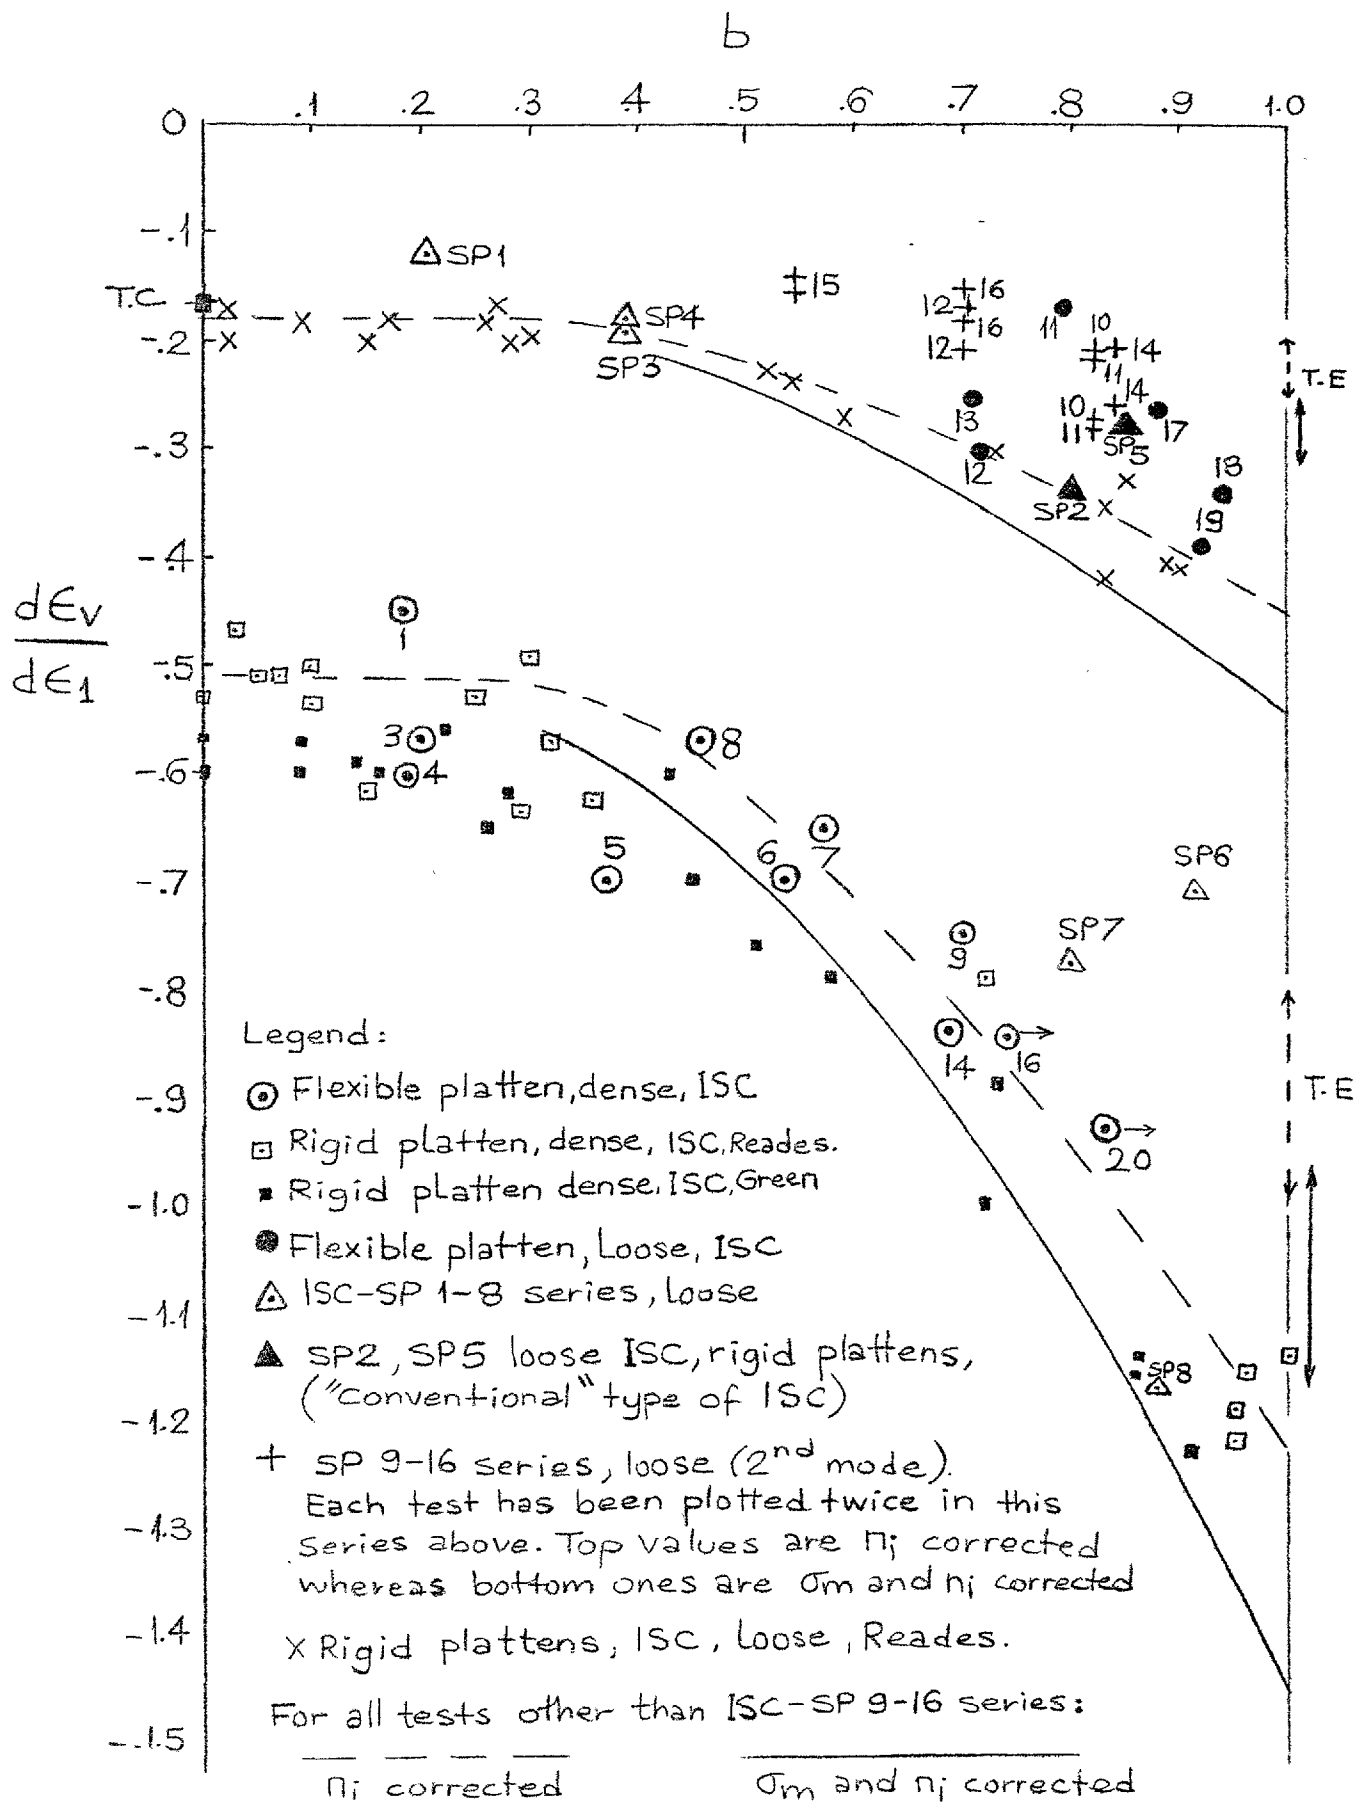 b
0 .1 .2 .3 .4 .5 .6 .7 .8 .9 1.0
-.1
SP1
T.C
15
16
12
16
12
11
10
14
11
SP4
-.2
SP3
T-E
13
10
14
11
17
SP5
-.3
12
SP2
18
19
-.4
dϵv
dϵ1
1
-.5
3
8
-.6
4
5
6
7
SP6
-.7
SP7
9
-.8
Legend:
14
16
Flexible platten, dense, ISC
T-E
-.9
Rigid platten, dense, ISC, Reades.
20
Rigid platten dense, ISC, Green
-1.0
Flexible platten, Loose, ISC
ISC-SP 1-8 series, loose
-1.1
SP2, SP5 loose ISC, rigid plattens,
SP8
("Conventional" type of ISC)
-1.2
+ SP 9-16 series, loose (2nd mode).
Each test has been plotted twice in this
-1.3
series above. Top values are ni corrected
whereas bottom ones are σm and ni corrected
-1.4
x Rigid plattens, ISC, Loose, Reades.
For all tests other than ISC-SP 9-16 series:
-1.5
ni corrected
σm and ni corrected